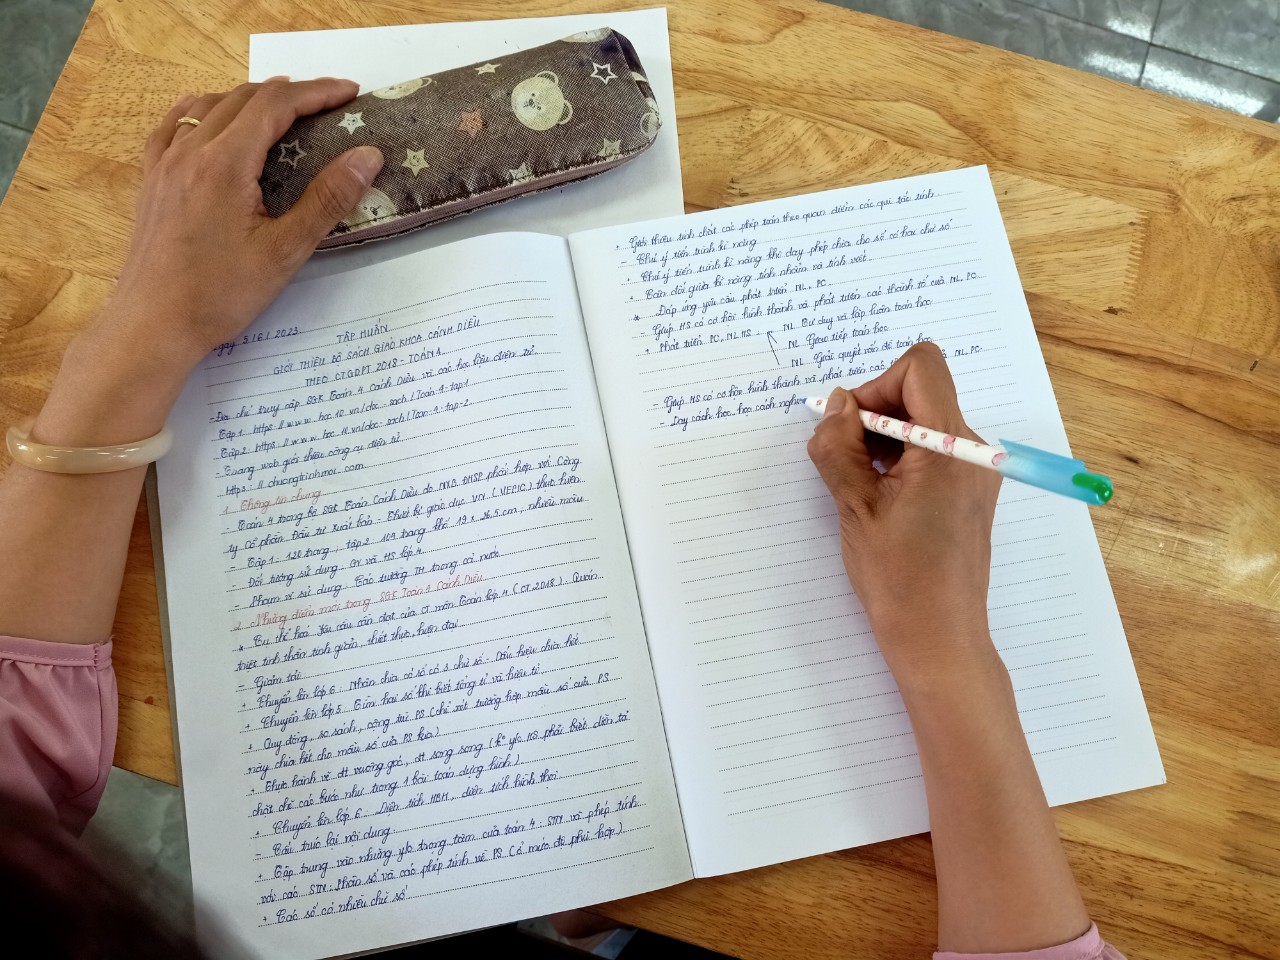 Ngày 5/6/2023.
TẬP HUẤN
GIỚI THIỆU BỘ SÁCH GIÁO KHOA CÁNH DIỀU
THEO CTGDPT 2018 - TOÁN 4
- Địa chỉ truy cập SGK Toán 4 Cánh Diều và các học liệu điện tử
Tập 1: https://www.hoc10.vn/doc-sach/Toan-4-tap1
Tập 2: https://www.hoc10.vn/doc-sach/Toan-4-tap-2
- Trang web giới thiệu công cụ điện tử
https://chuongtrinhmoi.com
1. Thông tin chung
- Toán 4 trong bộ SGK Toán Cánh Diều do NXB ĐHSP phối hợp với Công
ty Cổ phần Đầu tư Xuất bản - Thiết bị giáo dục VN (VEPIC) thực hiện
- Tập 1: 120 trang, tập 2: 109 trang khổ 19 x 26,5 cm, nhiều màu
- Đối tượng sử dụng: GV và HS lớp 4
- Phạm vi sử dụng: Các trường TH trong cả nước
2. Những điểm mới trong SGK Toán 4 Cánh Diều
* Cụ thể hoá Yêu cầu cần đạt của CT môn Toán lớp 4 (CT 2018). Quán
triệt tinh thần tinh giản, thiết thực, hiện đại
- Giảm tải
+ Chuyển lên lớp 6: Nhân chia có số có 3 chữ số. Dấu hiệu chia hết
+ Chuyển lên lớp 5: Tìm hai số khi biết tổng tỉ và hiệu tỉ
+ Quy đồng, so sánh, cộng trừ PS (chỉ xét trường hợp mẫu số của PS
này chia hết cho mẫu số của PS kia)
+ Thực hành vẽ đt vuông góc, đt song song (k° y/c HS phải biết diễn tả
chặt chẽ các bước như trong 1 bài toán dựng hình)
+ Chuyển lên lớp 6: Diện tích HBH, diện tích hình thoi
- Cấu trúc lại nội dung
+ Tập trung vào những y/c trọng tâm của toán 4: STN và phép tính
với các STN; Phân số và các phép tính về PS (ở mức độ phù hợp)
+ Các số có nhiều chữ số
+ Giới thiệu tính chất các phép toán theo quan điểm các qui tắc tính
- Chú ý tiến trình kĩ năng
+ Chú ý tiến trình kĩ năng khi dạy phép chia cho số có hai chữ số
+ Cân đối giữa kĩ năng tính nhẩm và tính viết
* Đáp ứng yêu cầu phát triển NL, PC
- Giúp HS có cơ hội hình thành và phát triển các thành tố của NL, PC
+ Phát triển PC, NL HS NL Tư duy và lập luận toán học
NL Giao tiếp toán học
NL Giải quyết vấn đề toán học
- Giúp HS có cơ hội hình thành và phát triển các NL, PC
- Dạy cách học, học cách nghĩ